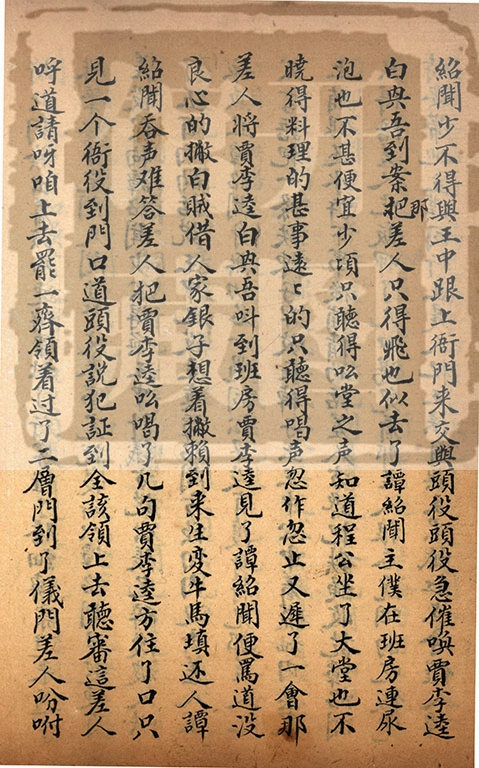 紹聞少不得與王中跟上衙門来交與頭役頭役急催喚賈李逵
白與吾到案把那差人只得飛也似去了譚紹聞主僕在班房連尿
泡也不甚便宜少項只聽得吆堂之声知道程公坐了大堂也不
曉得料理的甚事遠〻的只聽得唱声忽作忽止又遲了一會那
差人將賈李逵白與吾叫到班房賈李逵見了譚紹聞便罵道没
良心的撇白賊借人家銀子想着撇賴到来生変牛馬填还人譚
紹聞吞声难答差人把賈李逵吆喝了几句賈李逵方住了口只
見一个衙役到門口道頭役説犯証到全該領上去聽審這差人
呼道請呀咱上去罷一齊領着过了二層門到了儀門差人吩咐